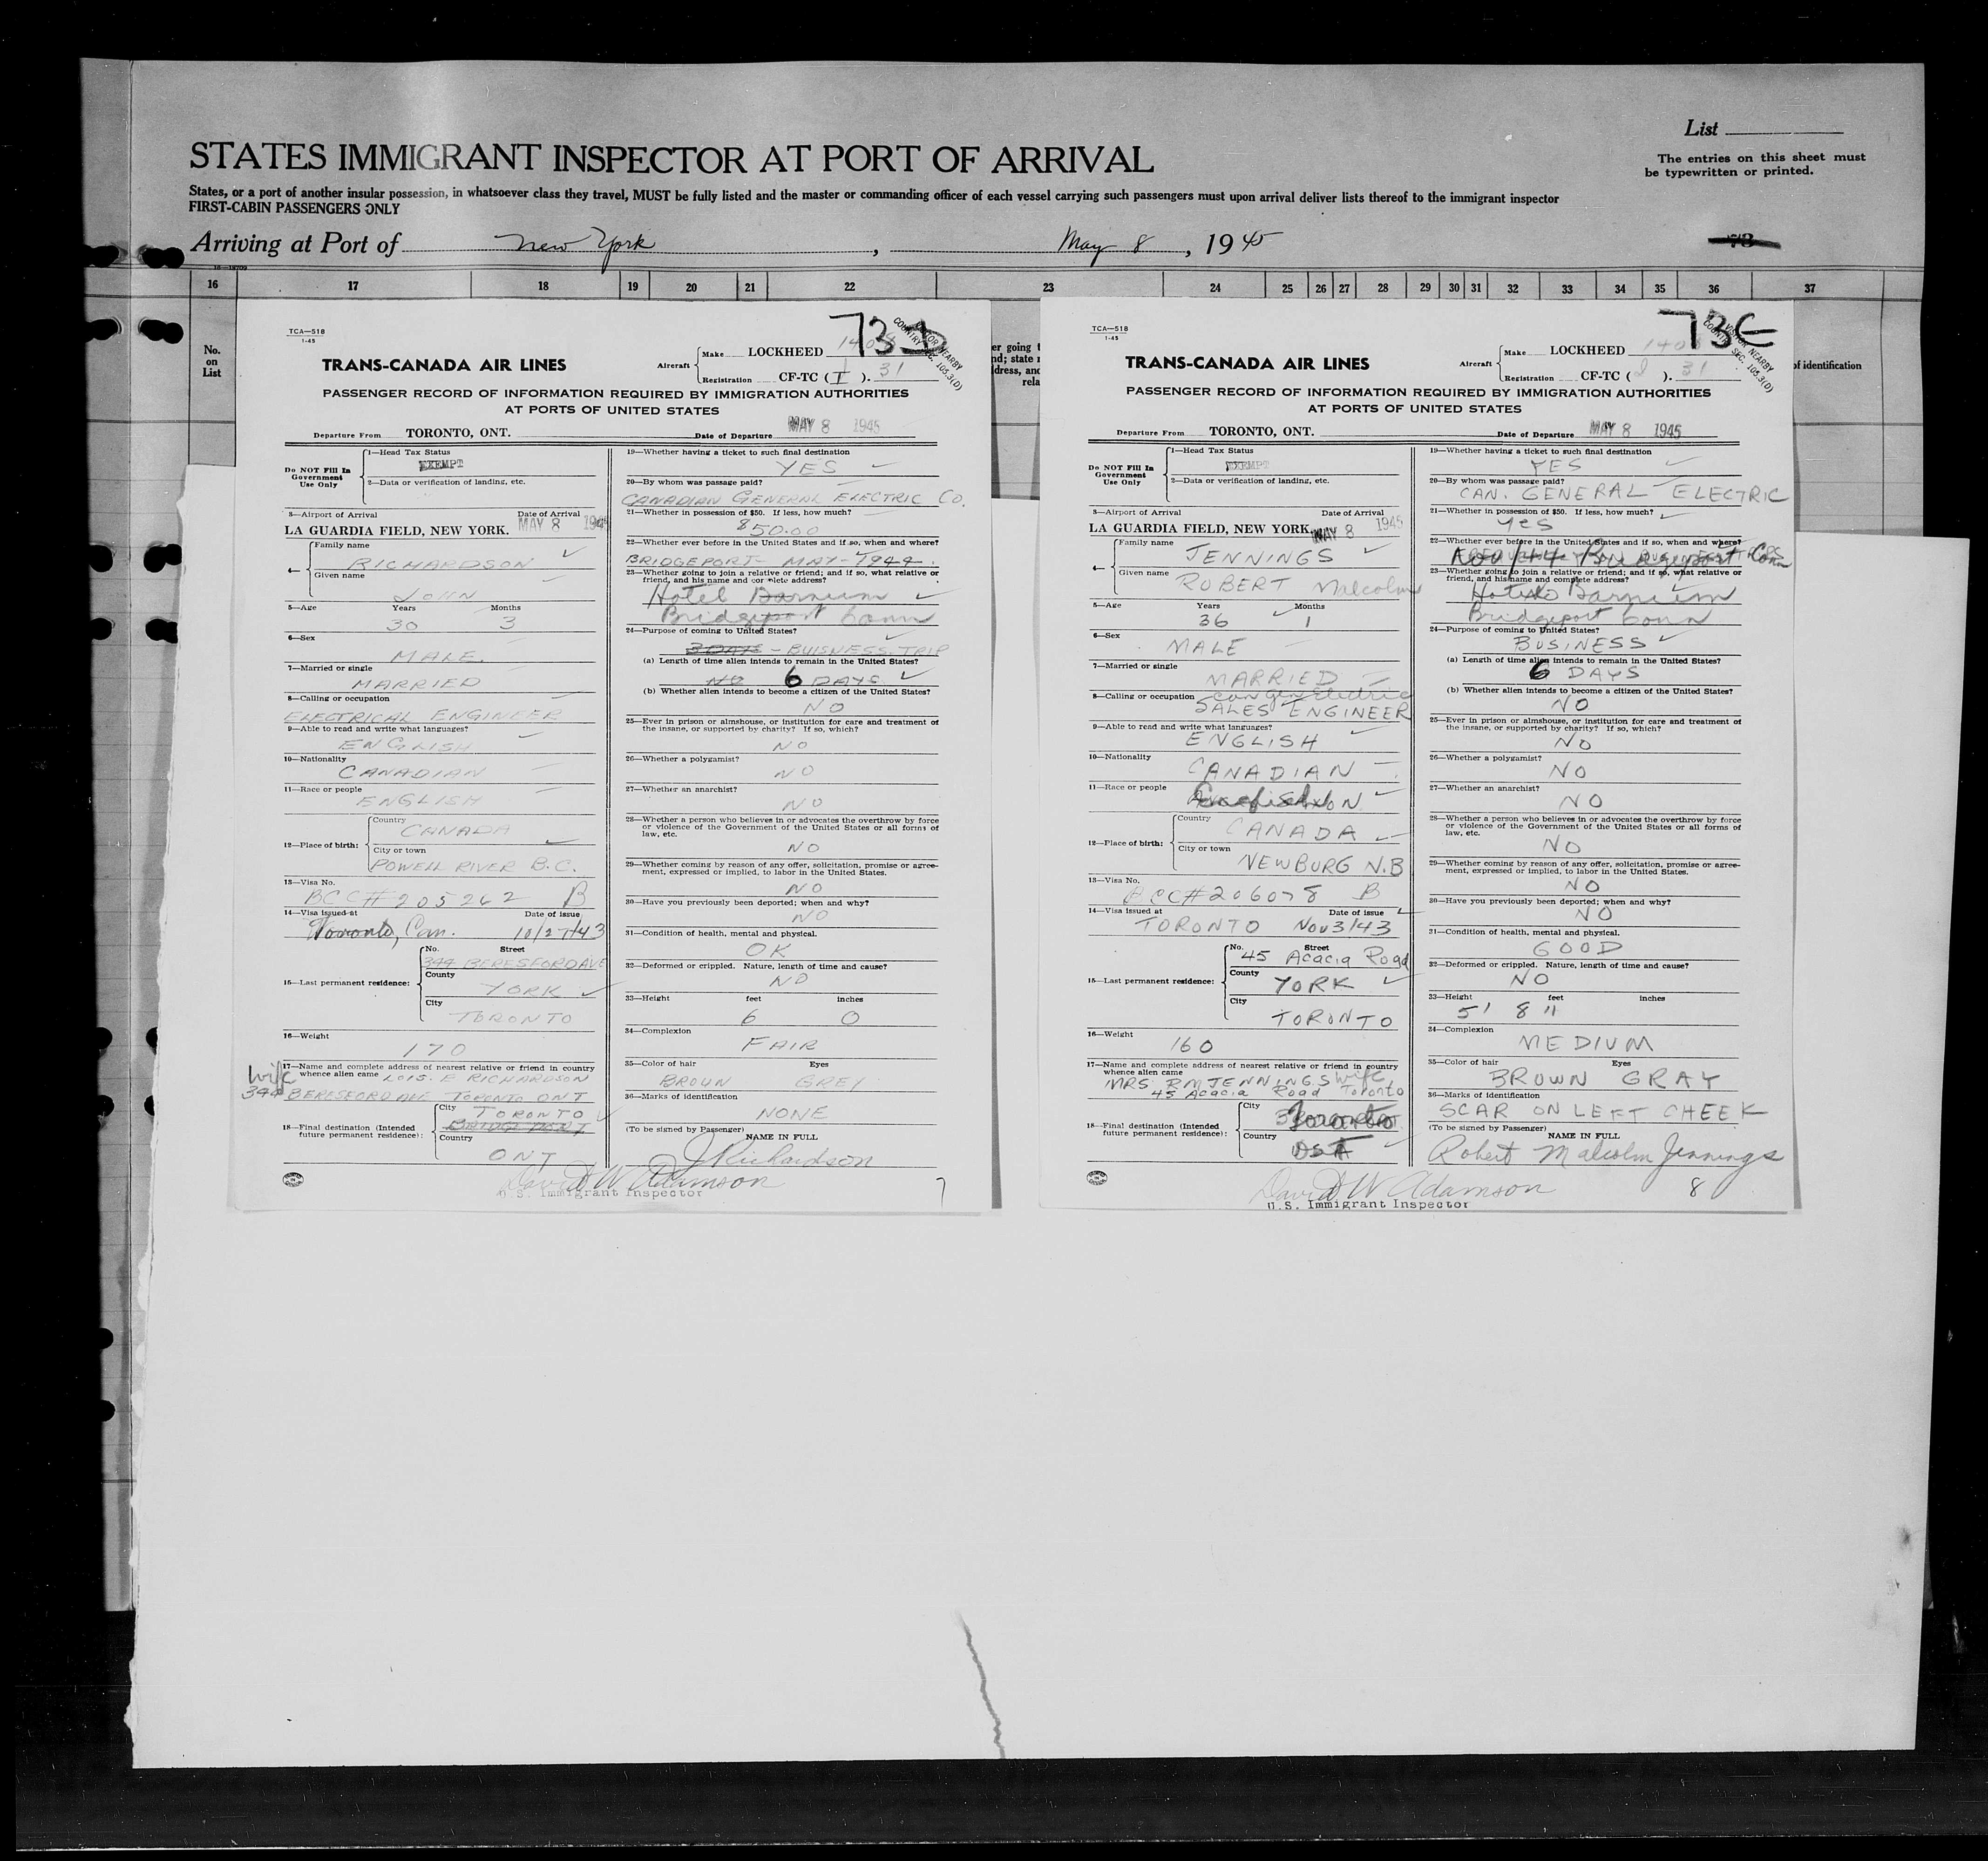 List
STATES IMMIGRANT INSPECTOR AT PORT OF ARRIVAL
The entries on this sheet must
be typewritten or printed.
States, or a port of another insular possession, in whatsoever class they travel, MUST be fully listed and the master or commanding officer of each vessel carrying such passengers must upon arrival deliver lists thereof to the immigrant inspector
FIRST-CABIN PASSENGERS ONLY
Arriving at Port of New York, May 8, 1945
16 17 18 19 20 21 22 23 24 25 26 27 28 29 30 31 32 33 34 35 36 37
No.
on
List
of identification
TCA—518
1-45
73
TRANS-CANADA AIR LINES
Aircraft Make LOCKHEED
Registration CF-TC ( I ). 31
PASSENGER RECORD OF INFORMATION REQUIRED BY IMMIGRATION AUTHORITIES
AT PORTS OF UNITED STATES
Departure From TORONTO, ONT. Date of Departure MAY 8 1945
Do NOT Fill In
Government
Use Only
1—Head Tax Status
EXEMPT
2—Data or verification of landing, etc.
3—Airport of Arrival Date of Arrival
LA GUARDIA FIELD, NEW YORK. MAY 8 1945
4— Family name
RICHARDSON
Given name
JOHN
5—Age Years Months
30 3
6—Sex
MALE
7—Married or single
MARRIED
8—Calling or occupation
ELECTRICAL ENGINEER
9—Able to read and write what languages?
ENGLISH
10—Nationality
CANADIAN
11—Race or people
ENGLISH
12—Place of birth: Country
CANADA
City or town
POWELL RIVER B.C.
13—Visa No.
BCC# 205262 B
14—Visa issued at Date of issue
Toronto, Can. 10/27/43
15—Last permanent residence: No. Street
344 BERESFORD AVE
County
YORK
City
TORONTO
16—Weight
170
17—Name and complete address of nearest relative or friend in country
whence alien came LOIS. E RICHARDSON
wife
344 BERESFORD AVE TORONTO ONT
18—Final destination (Intended
future permanent residence): City
TORONTO
BRIDGEPORT
Country
ONT
19—Whether having a ticket to such final destination
YES
20—By whom was passage paid?
CANADIAN GENERAL ELECTRIC CO.
21—Whether in possession of $50. If less, how much?
$50.00
22—Whether ever before in the United States and if so, when and where?
BRIDGEPORT - MAY - 1944.
23—Whether going to join a relative or friend; and if so, what relative or
friend, and his name and complete address?
Hotel Barnum
Bridgeport Conn
24—Purpose of coming to United States?
3 DAYS - BUISNESS TRIP
(a) Length of time alien intends to remain in the United States?
NO 6 DAYS
(b) Whether alien intends to become a citizen of the United States?
NO
25—Ever in prison or almshouse, or institution for care and treatment of
the insane, or supported by charity? If so, which?
NO
26—Whether a polygamist?
NO
27—Whether an anarchist?
NO
28—Whether a person who believes in or advocates the overthrow by force
or violence of the Government of the United States or all forms of
law, etc.
NO
29—Whether coming by reason of any offer, solicitation, promise or agree-
ment, expressed or implied, to labor in the United States.
NO
30—Have you previously been deported; when and why?
NO
31—Condition of health, mental and physical.
OK
32—Deformed or crippled. Nature, length of time and cause?
NO
33—Height feet inches
6 0
34—Complexion
FAIR
35—Color of hair Eyes
BROWN GREY
36—Marks of identification
NONE
(To be signed by Passenger)
NAME IN FULL
J Richardson
David W Adamson
U.S. Immigrant Inspector
7
TCA—518
1-45
73
TRANS-CANADA AIR LINES
Aircraft Make LOCKHEED
Registration CF-TC ( ). 31
PASSENGER RECORD OF INFORMATION REQUIRED BY IMMIGRATION AUTHORITIES
AT PORTS OF UNITED STATES
Departure From TORONTO, ONT. Date of Departure MAY 8 1945
Do NOT Fill In
Government
Use Only
1—Head Tax Status
EXEMPT
2—Data or verification of landing, etc.
3—Airport of Arrival Date of Arrival
LA GUARDIA FIELD, NEW YORK. MAY 8 1945
4— Family name
JENNINGS
Given name
ROBERT Malcolm
5—Age Years Months
36 1
6—Sex
MALE
7—Married or single
MARRIED
8—Calling or occupation Can Gen Electric
SALES ENGINEER
9—Able to read and write what languages?
ENGLISH
10—Nationality
CANADIAN
11—Race or people
English
12—Place of birth: Country
CANADA
City or town
NEWBURG N.B
13—Visa No.
BCC# 206078 B
14—Visa issued at Date of issue
TORONTO Nov 3/43
15—Last permanent residence: No. Street
45 Acacia Road
County
YORK
City
TORONTO
16—Weight
160
17—Name and complete address of nearest relative or friend in country
whence alien came
MRS. RM JENNINGS wife
45 Acacia Road Toronto
18—Final destination (Intended
future permanent residence): City
Toronto
Country
USA
19—Whether having a ticket to such final destination
YES
20—By whom was passage paid?
CAN. GENERAL ELECTRIC
21—Whether in possession of $50. If less, how much?
YES
22—Whether ever before in the United States and if so, when and where?
Nov/44 Bridgeport Conn
23—Whether going to join a relative or friend; and if so, what relative or
friend, and his name and complete address?
Hotel Barnum
Bridgeport Conn
24—Purpose of coming to United States?
BUSINESS
(a) Length of time alien intends to remain in the United States?
6 DAYS
(b) Whether alien intends to become a citizen of the United States?
NO
25—Ever in prison or almshouse, or institution for care and treatment of
the insane, or supported by charity? If so, which?
NO
26—Whether a polygamist?
NO
27—Whether an anarchist?
NO
28—Whether a person who believes in or advocates the overthrow by force
or violence of the Government of the United States or all forms of
law, etc.
NO
29—Whether coming by reason of any offer, solicitation, promise or agree-
ment, expressed or implied, to labor in the United States.
NO
30—Have you previously been deported; when and why?
NO
31—Condition of health, mental and physical.
GOOD
32—Deformed or crippled. Nature, length of time and cause?
NO
33—Height feet inches
5' 8"
34—Complexion
MEDIUM
35—Color of hair Eyes
BROWN GRAY
36—Marks of identification
SCAR ON LEFT CHEEK
(To be signed by Passenger)
NAME IN FULL
Robert Malcolm Jennings
David W Adamson
U.S. Immigrant Inspector
8